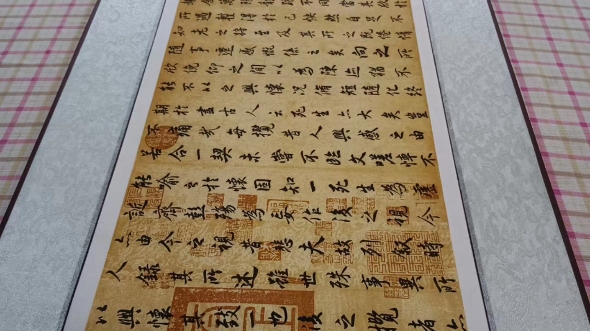 所遇暫得於己快然自足不
知老之將至及其所之既惓情
隨事遷感慨係之矣向之所
欣俛仰之間以為陳迹猶不
能不以之興懷況脩短隨化終
期於盡古人云死生亦大矣豈
不痛哉每攬昔人興感之由
若合一契未嘗不臨文嗟悼不
能喻之於懷固知一死生為虛
誕齊彭殤為妄作後之視今
亦由今之視昔悲夫故列叙時
人錄其所述雖世殊事異所
以興懷其致一也後之攬者亦